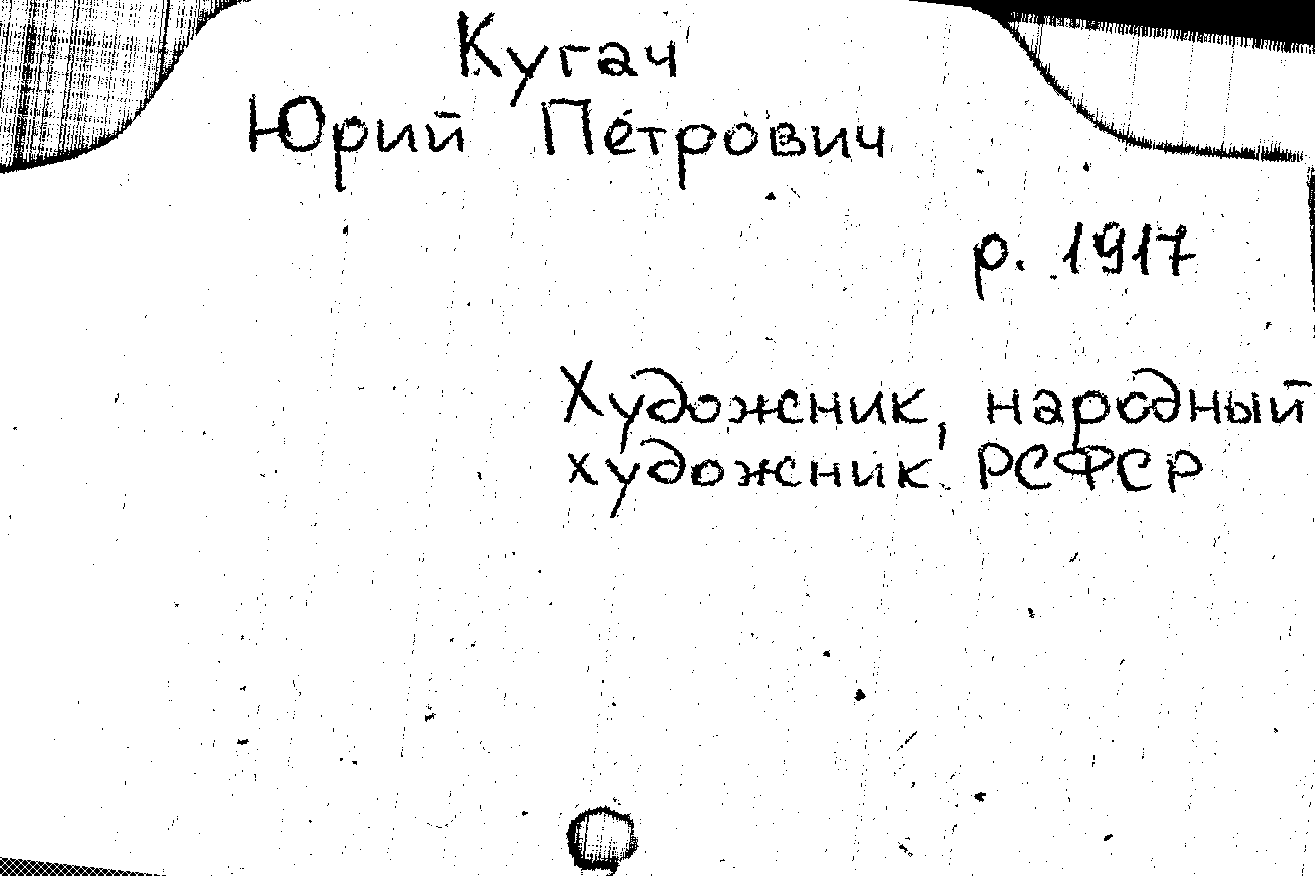 Кугач
Юрий Петрович
р. 1917
Художник, народный
художник РСФСР